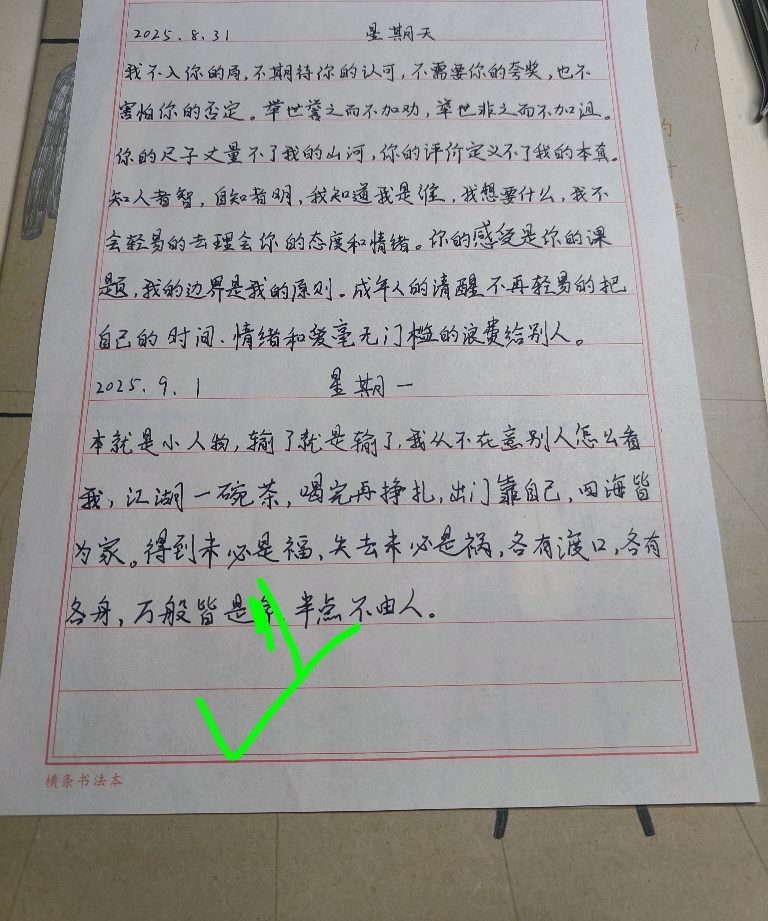 2025.8.31 星期天
我不入你的局,不期待你的认可,不需要你的夸奖,也不
害怕你的否定。举世誉之而不加劝,举世非之而不加沮。
你的尺子丈量不了我的山河,你的评价定义不了我的本真。
知人者智,自知者明,我知道我是谁,我想要什么,我不
会轻易的去理会你的态度和情绪。你的感受是你的课
题,我的边界是我的原则。成年人的清醒不再轻易的把
自己的时间.情绪和爱毫无门槛的浪费给别人。
2025.9.1 星期一
本就是小人物,输了就是输了,我从不在意别人怎么看
我,江湖一碗茶,喝完再挣扎,出门靠自己,四海皆
为家。得到未必是福、失去未必是祸,各有渡口,各有
各舟,万般皆是 半点不由人。
横条书法本